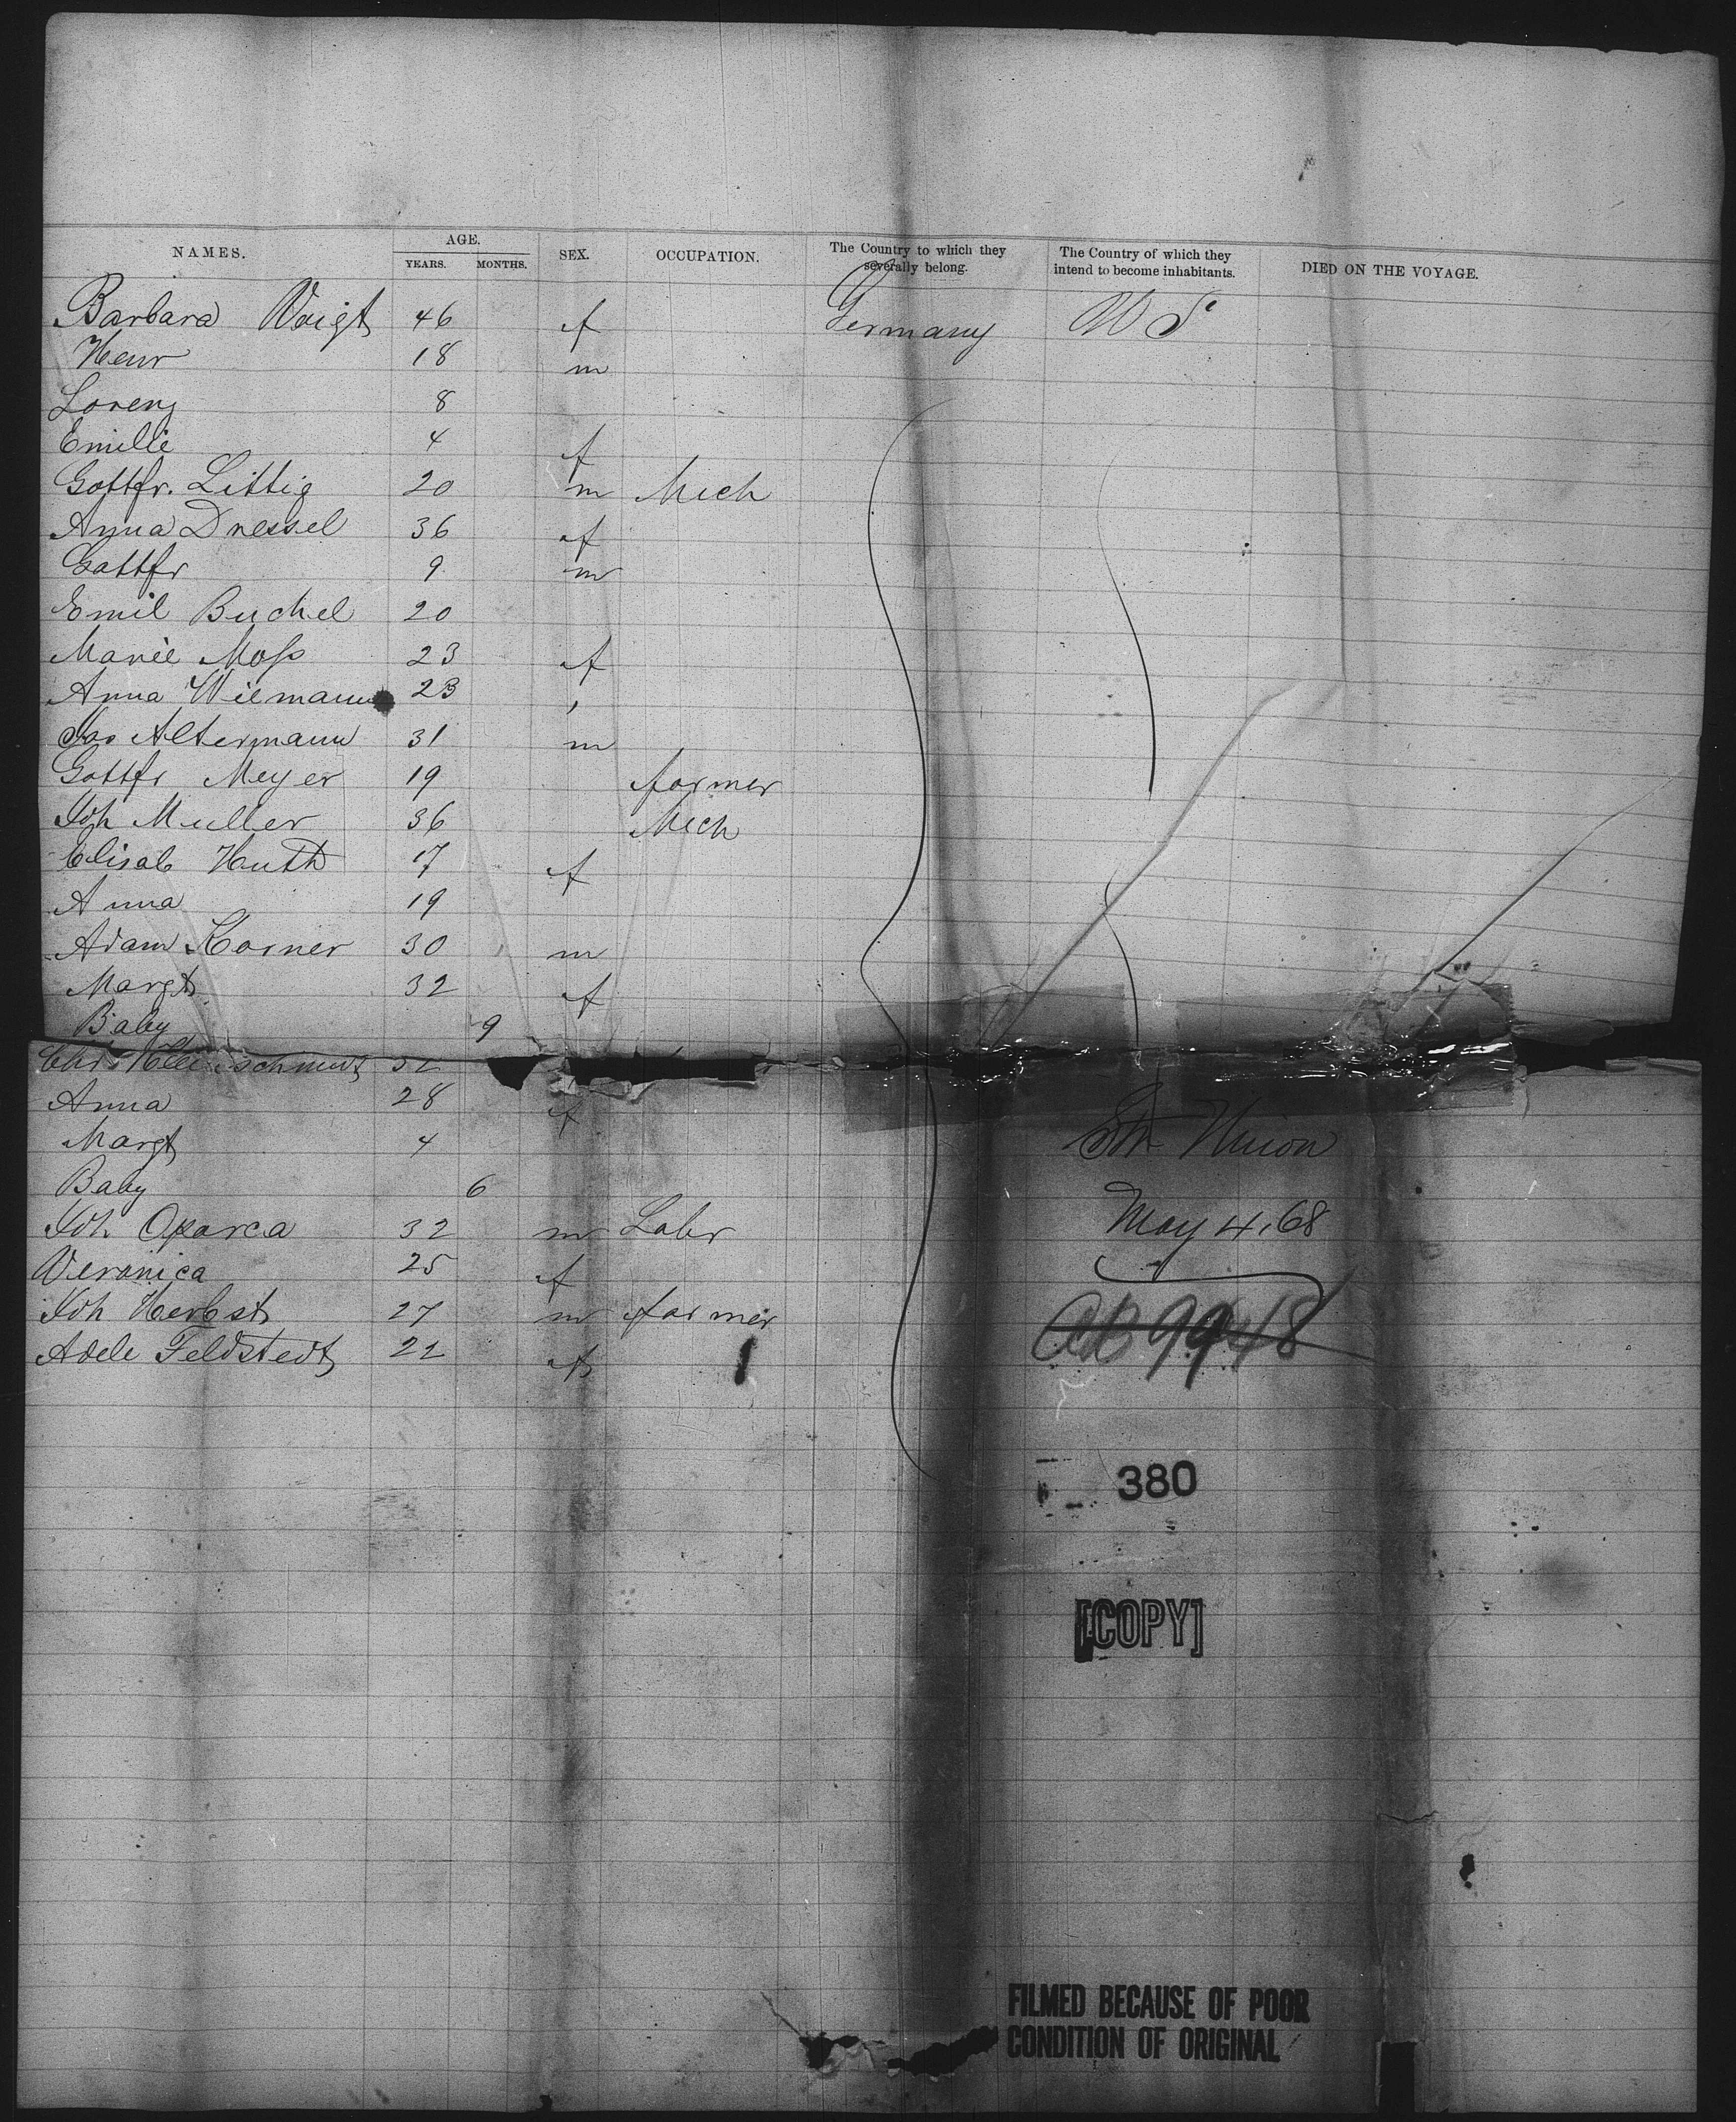 NAMES. AGE. YEARS. MONTHS. SEX. OCCUPATION. The Country to which they severally belong. The Country of which they intend to become inhabitants. DIED ON THE VOYAGE.
Barbara Voigt 46 f Germany U S
Henr 18 m
Lorenz 8
Emilie 4 f
Gottfr. Littig 20 m Mech
Anna Dressel 36 f
Gottfr 9 m
Emil Buchel 20
Marie Moss 23 f
Anna Wiemann 23 "
Altermann 31 m
Gottfr Meyer 19 farmer
Joh Muller 36 Mech
Elisab Huth 17 f
Anna 19
Adam Korner 30 m
Margt 32 f
Baby 9
Chr 32
Anna 28 f
Margt 4
Baby 6
Joh Oparca 32 m Labr
Veronica 25 f
Joh Herbst 27 m farmer
Adele Feldstedt 22 f
Str Union
May 4, 68
9948
380
[COPY]
FILMED BECAUSE OF POOR
CONDITION OF ORIGINAL